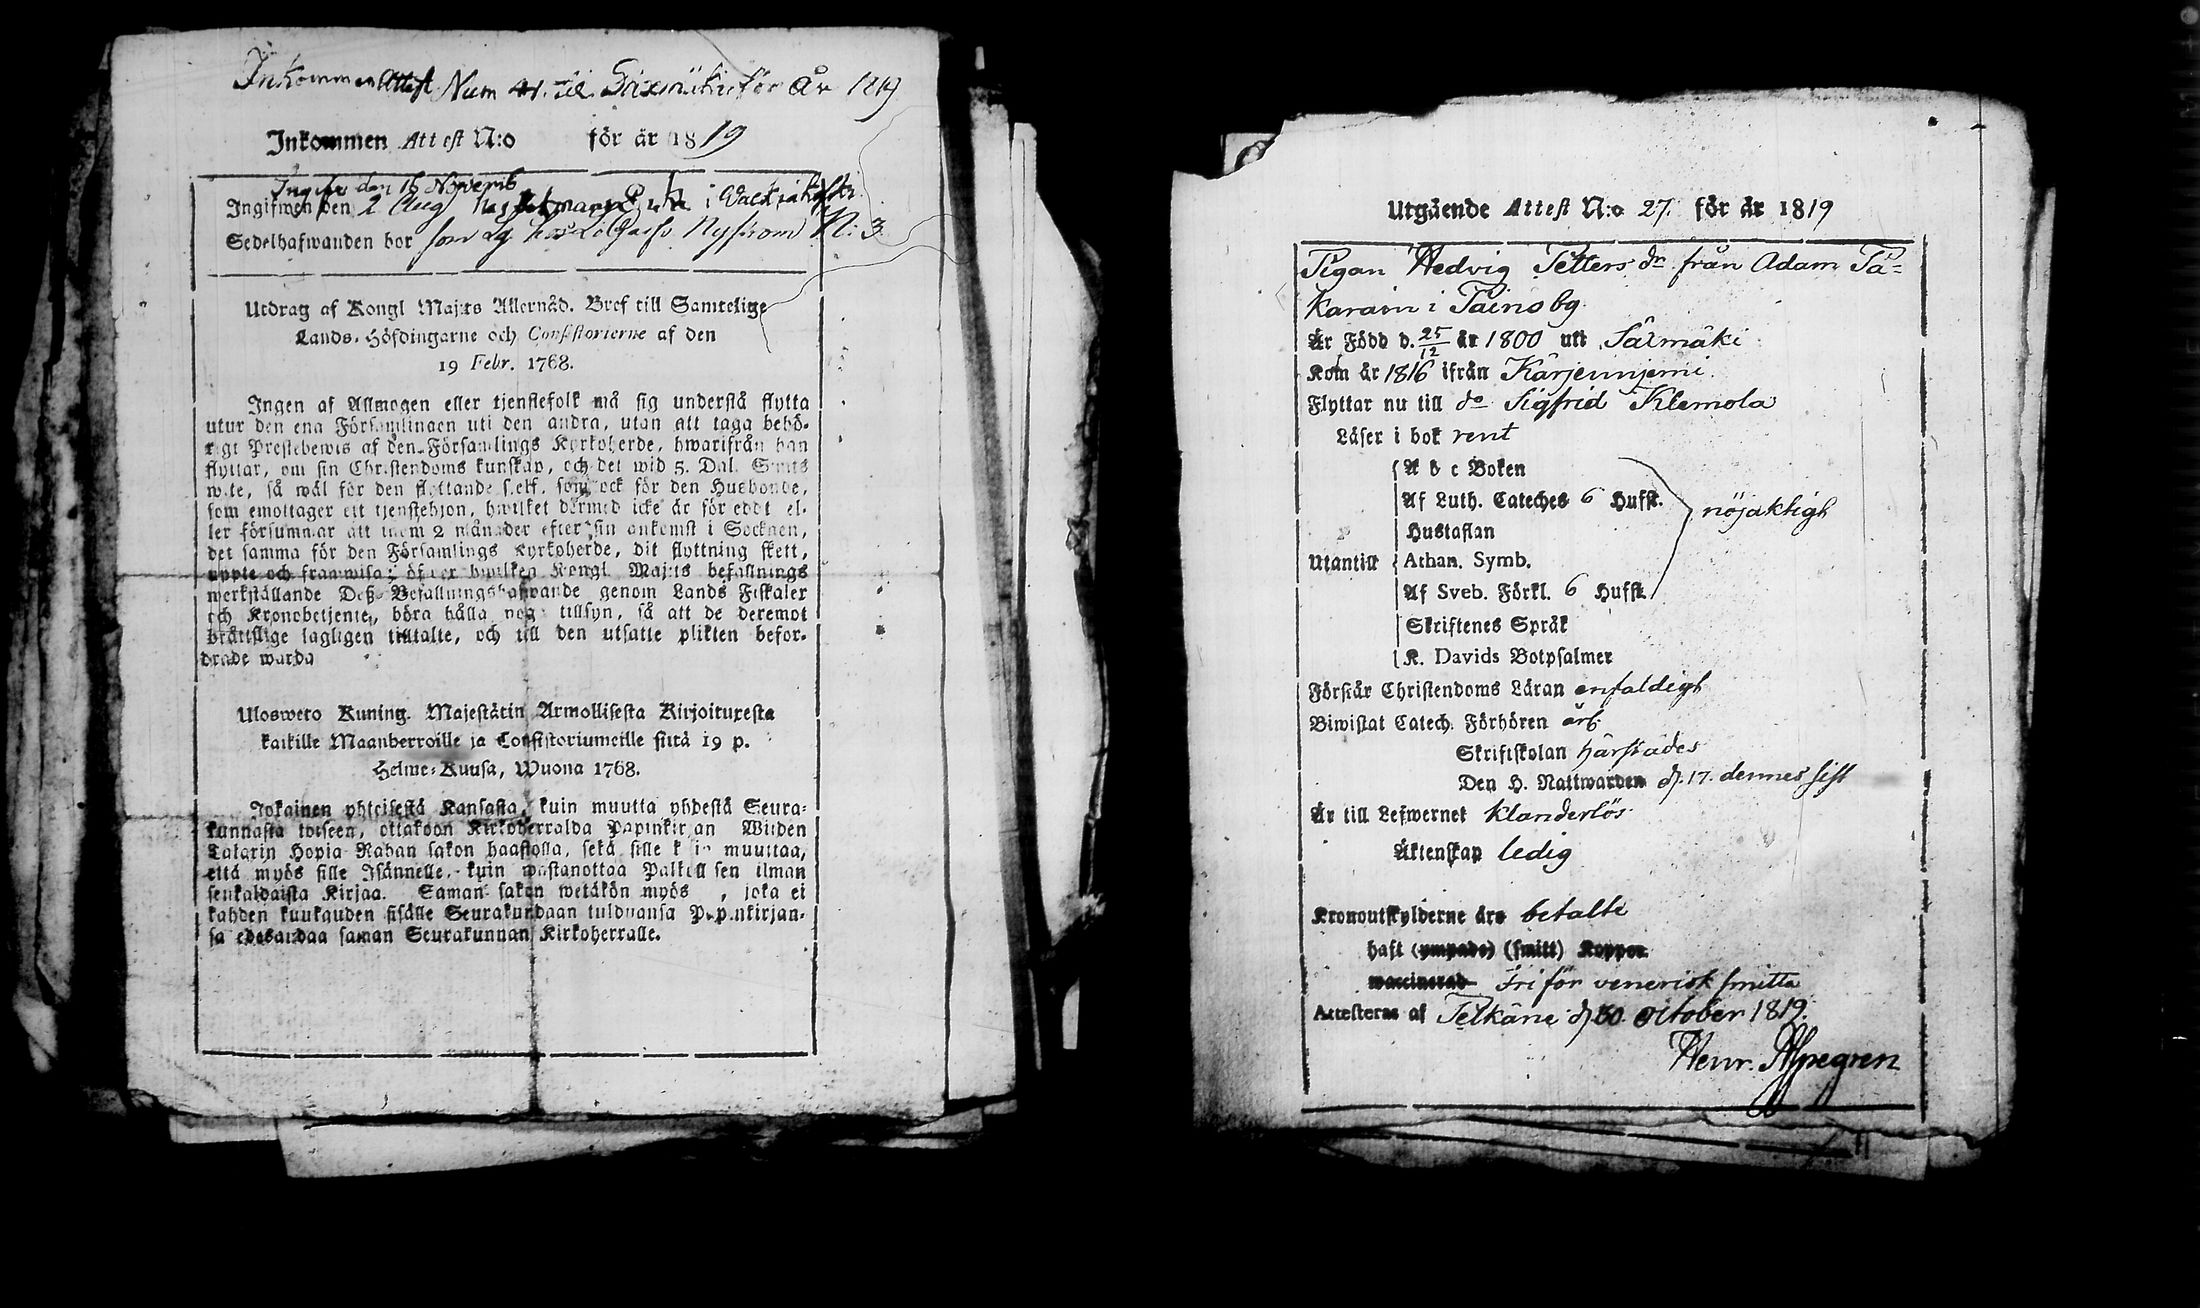 Inkommen Attest Num 41. til Säxmäki för År 1819
Inkommen Attest N:o för år 1819
Ingifven den 16 Novemb
Ingifwen den 2 Aug i
Sedelhafwanden bor som Nyström N: 3
Utdrag af Kongl Maj:ts Allernåd. Bref till Samtelige
Lands-Höfdingarne och Consistorierne af den
19 Febr. 1768.
Ingen af Allmogen eller tjenstefolk må sig understå flytta
utur den ena Församlingen uti den andra, utan att taga behö-
rigt Prestebewis af den Församlings Kyrkoherde, hwarifrån han
flyttar, om sin Christendoms kunskap, och det wid 5. Dal. Smts
wite, så wäl för den flyttande sielf, som ock för den Husbonde,
som emottager ett tjenstehjon, hwilket därmed icke är föreddt el-
ler försummar att inom 2 månader efter sin ankomst i Socknen,
det samma för den Församlings Kyrkoherde, dit flyttning skett,
uppte och framwisa; öfwer hwilken Kongl Maj:ts befallnings
werkställande Deß Befallningshafwande genom Lands Fiskaler
och Kronobetjente, böra hålla noga tillsyn, så att de deremot
bråttslige lagligen tilltalte, och till den utsatte plikten befor-
drade warda
Ulosweto Kuning. Majestätin Armollisesta Kirjoituxesta
kaikille Maanherroille ja Consistoriumeille siitä 19 p.
Helme-Kuusa, Wuona 1768.
Jokainen yhteisestä Kansasta, kuin muutta yhdestä Seura-
kunnasta toiseen, ottakoon Kirkoherralda Papinkirjan Wiiden
Talarin Hopia Rahan sakon haastolla, sekä sille kuin muuttaa,
että myös sille Isännelle, kuin wastanottaa Palkollisen ilman
senkaldaista Kirjaa. Saman sakon wetäkön myös , joka ei
kahden kuukauden sisälle Seurakundaan tulduansa Papinkirjan-
sa edeskandaa saman Seurakunnan Kirkoherralle.
Utgående Attest N:o 27. för år 1819
Pigan Hedvig Petters dr från Adam Pä=
karain i Painoby
Är Född d. 25/12 år 1800 uti Säxmäki
Kom år 1816 ifrån Kärjenniemi
Flyttar nu till do Sigfrid Klemola
Läser i bok rent
A b c Boken
Af Luth. Cateches 6 Hufst. nöjaktigt
Hustaflan
Utantill Athan. Symb.
Af Sveb. Förkl. 6 Hufst.
Skriftenes Språk
K. Davids Botpsalmer
Förstår Christendoms Läran enfaldigt
Biwistat Catech. Förhören
Skriftskolan härstädes
Den H. Nattwarden d. 17. dennes sist
Är till Lefwernet klanderlös
Äktenskap ledig
Kronoutskylderne äro betalte
haft (ympade) (smitt) Koppor
waccinerad Fri för venerisk smitta
Attesteras af Pelkäne d 30. October 1819.
Henr.